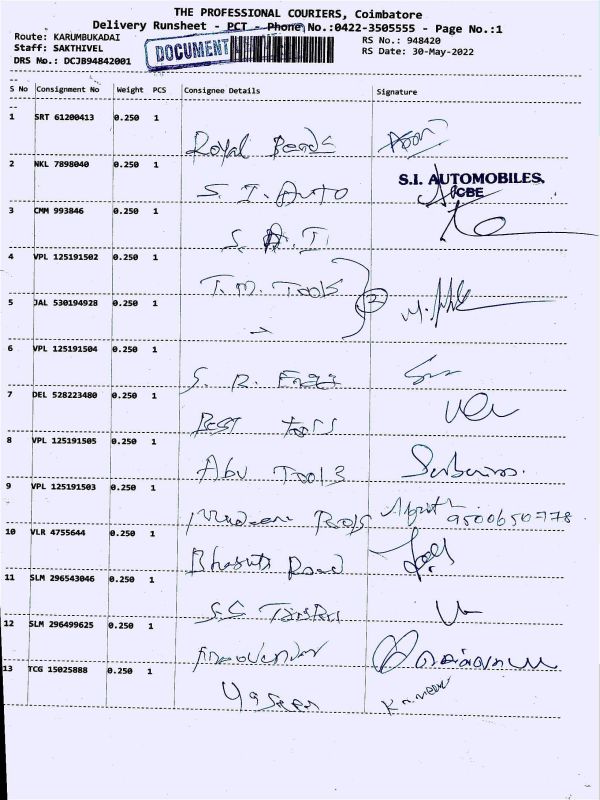 THE PROFESSIONAL COURIERS, Coimbatore
Delivery Runsheet - PCT - Phone No.:0422-3505555 - Page No.:1
Route: KARUMBUKADAI
RS No.: 948420
Staff: SAKTHIVEL
DOCUMENT
RS Date: 30-May-2022
DRS No.: DCJB94842001
S No Consignment No Weight PCS Consignee Details Signature
1 SRT 61200413 0.250 1
Royal Beads
2 NKL 7898040 0.250 1
S.I. AUTOMOBILES.
CBE
S. I. Auto
3 CMM 993846 0.250 1
S. A. I.
4 VPL 125191502 0.250 1
T.M. Tools
2
5 JAL 530194928 0.250 1
6 VPL 125191504 0.250 1
S. R.
7 DEL 528223480 0.250 1
Best Tools
8 VPL 125191505 0.250 1
Abu Tools
9 VPL 125191503 0.250 1
9500650778
10 VLR 4755644 0.250 1
Road
11 SLM 296543046 0.250 1
S.S
12 SLM 296499625 0.250 1
13 TCG 15025888 0.250 1
Yaseen